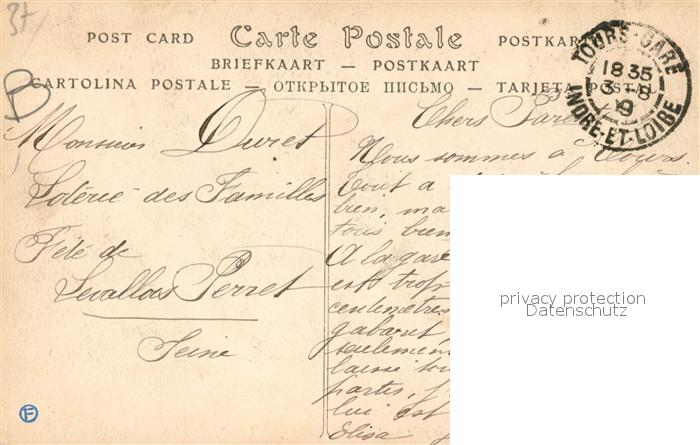 37
POST CARD Carte Postale POSTKAR
BRIEFKAART — POSTKAART
CARTOLINA POSTALE — ОТКРЫТОЕ ПИСЬМО — TARJETA POSTAL
TOURS-GARE
18 35
3 - 8
9
INDRE-ET-LOIRE
B
Monsieur Duret
Loterie des Familles
Fête de
Levallois Perret
Seine
Chers Paren
Nous sommes à Tours.
Tout a
bien, ma
tous bien
A la gare
est trop
centimètres
gabarit
seulement
laisse
partis, j
lui est
Elisa
privacy protection
Datenschutz
F